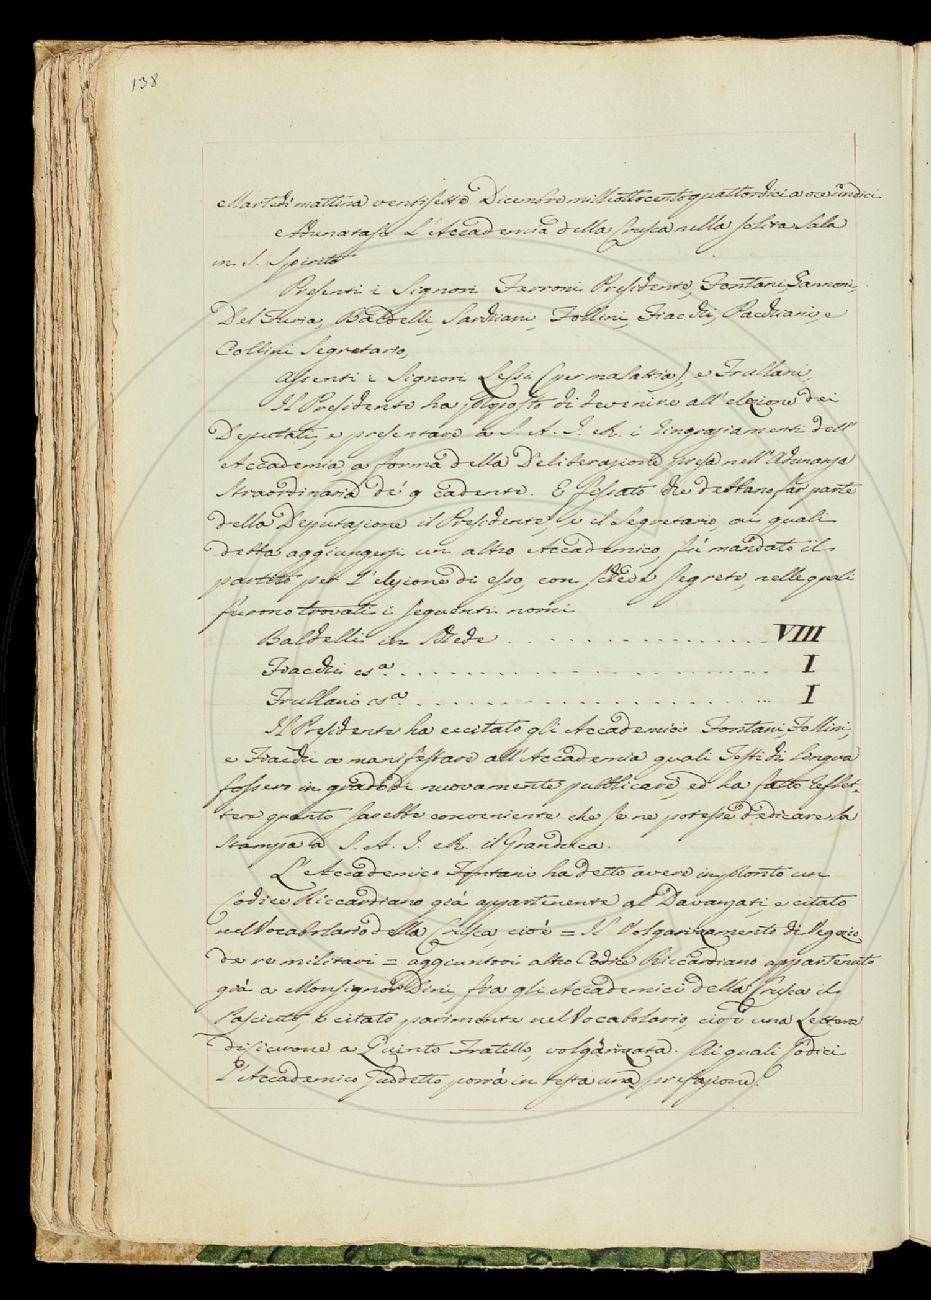 138
Martedi mattina ventisette Dicembre milleottocentoquattordici a ore undici
Adunatasi l'Accademia della Crusca nella solita Sala
in S. Spirito
Presenti i Signori Ferroni Presidente, Fontani, Zannoni,
Del Furia, Baldelli, Sarchiani, Follini, Fiacchi, Pacchiani, e
Collini Segretario,
Assenti i Signori Lessi (per malattia), e Frullani,
Il Presidente ha proposto di devenire all'elezione dei
Deputati, e presentare a S. A. I. e R. i ringraziamenti dell'
Accademia, a forma della Deliberazione presa nell'Adunanza
straordinaria de' 9 cadente. E fissato che debbano far parte
della Deputazione il Presidente, e il Segretario, ai quali
debba aggiungersi un altro Accademico fù mandato il
partito per l'elezione di esso, con schede segrete, nelle quali
furono trovati i seguenti nomi
Baldelli in schede . . . . . . . . . . . . VIII
Fiacchi csa. . . . . . . . . . . . . . . . . I
Frullani csa. . . . . . . . . . . . . . . . I
Il Presidente ha eccitato gli Accademici Fontani, Follini,
e Fiacchi a manifestare all'Accademia quali Testi di Lingua
fossero in grado di nuovamente pubblicare, ed ha fatto reflet-
tere quanto sarebbe conveniente che se ne potesse dedicare la
stampa a S. A. I. e R. il Granduca.
L'Accademico Fontani ha detto avere in pronto un
Codice Riccardiano già appartenente al Davanzati, e citato
nel Vocabolario della Crusca, cioè = Il Volgarizzamento di Vegezio
de re militari = aggiuntovi altro Codice Riccardiano appartenuto
già a Monsignor Dini, fra gli Accademici della Crusca il
Pasciuto, e citato parimente nel Vocabolario, cioè una Lettera
di Cicerone a Quinto Fratello, volgarizzata. Ai quali Codici
l'Accademico suddetto porrà in testa una prefazione.